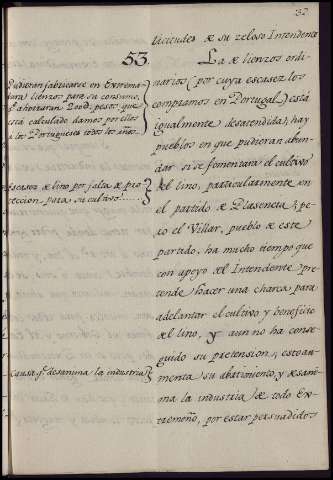 32
licitudes de su zeloso Intendente
53. La de lienzos ordi-
narios (por cuya escasez los
compramos en Portugal) está
igualmente desatendida; hay
pueblos en que pudieran abun-
dar si se fomentara el cultivo
del lino, particularmente en
el partido de Plasencia; pe-
ro el Villar, pueblo de este
partido, ha mucho tiempo que
con apoyo del Intendente pre-
tende hacer una charca para
adelantar el cultivo y beneficio
del lino, y aun no ha conse-
guido su pretension; esto au-
menta su abatimiento, y desani-
ma la industria de todo Ex-
tremeño, por estar persuadidos
Pudieran fabricarse en Extrema-
dura lienzos para su consumo,
y ahorraran 200 d. pesos que
está calculado damos por ellos
a los Portugueses todos los años.
Escasez de lino por falta de pro-
teccion para su cultivo.....
Causa q.e desanima la industria